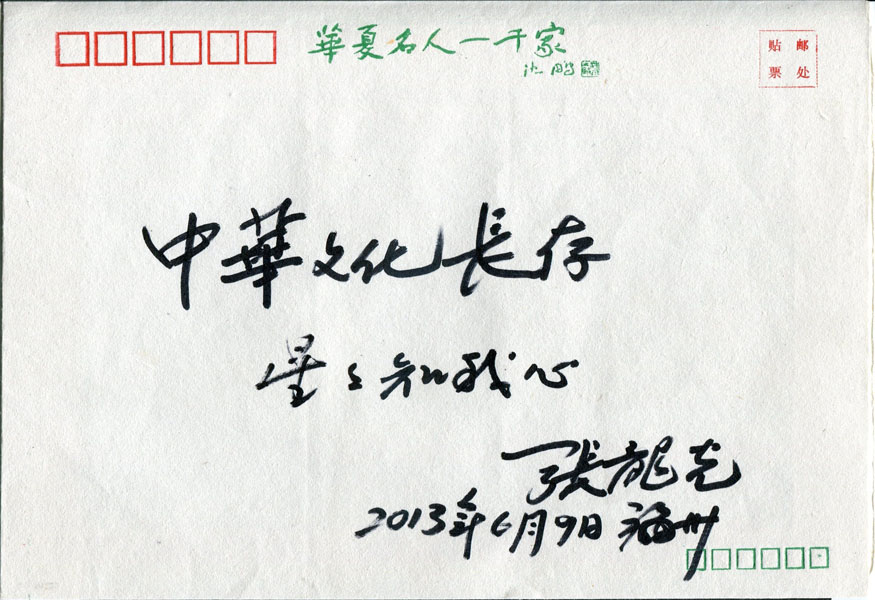 華夏名人一千家
沈鹏
贴 邮
票 处
中華文化長存
星々知我心
張龍光
2013年6月9日 福州